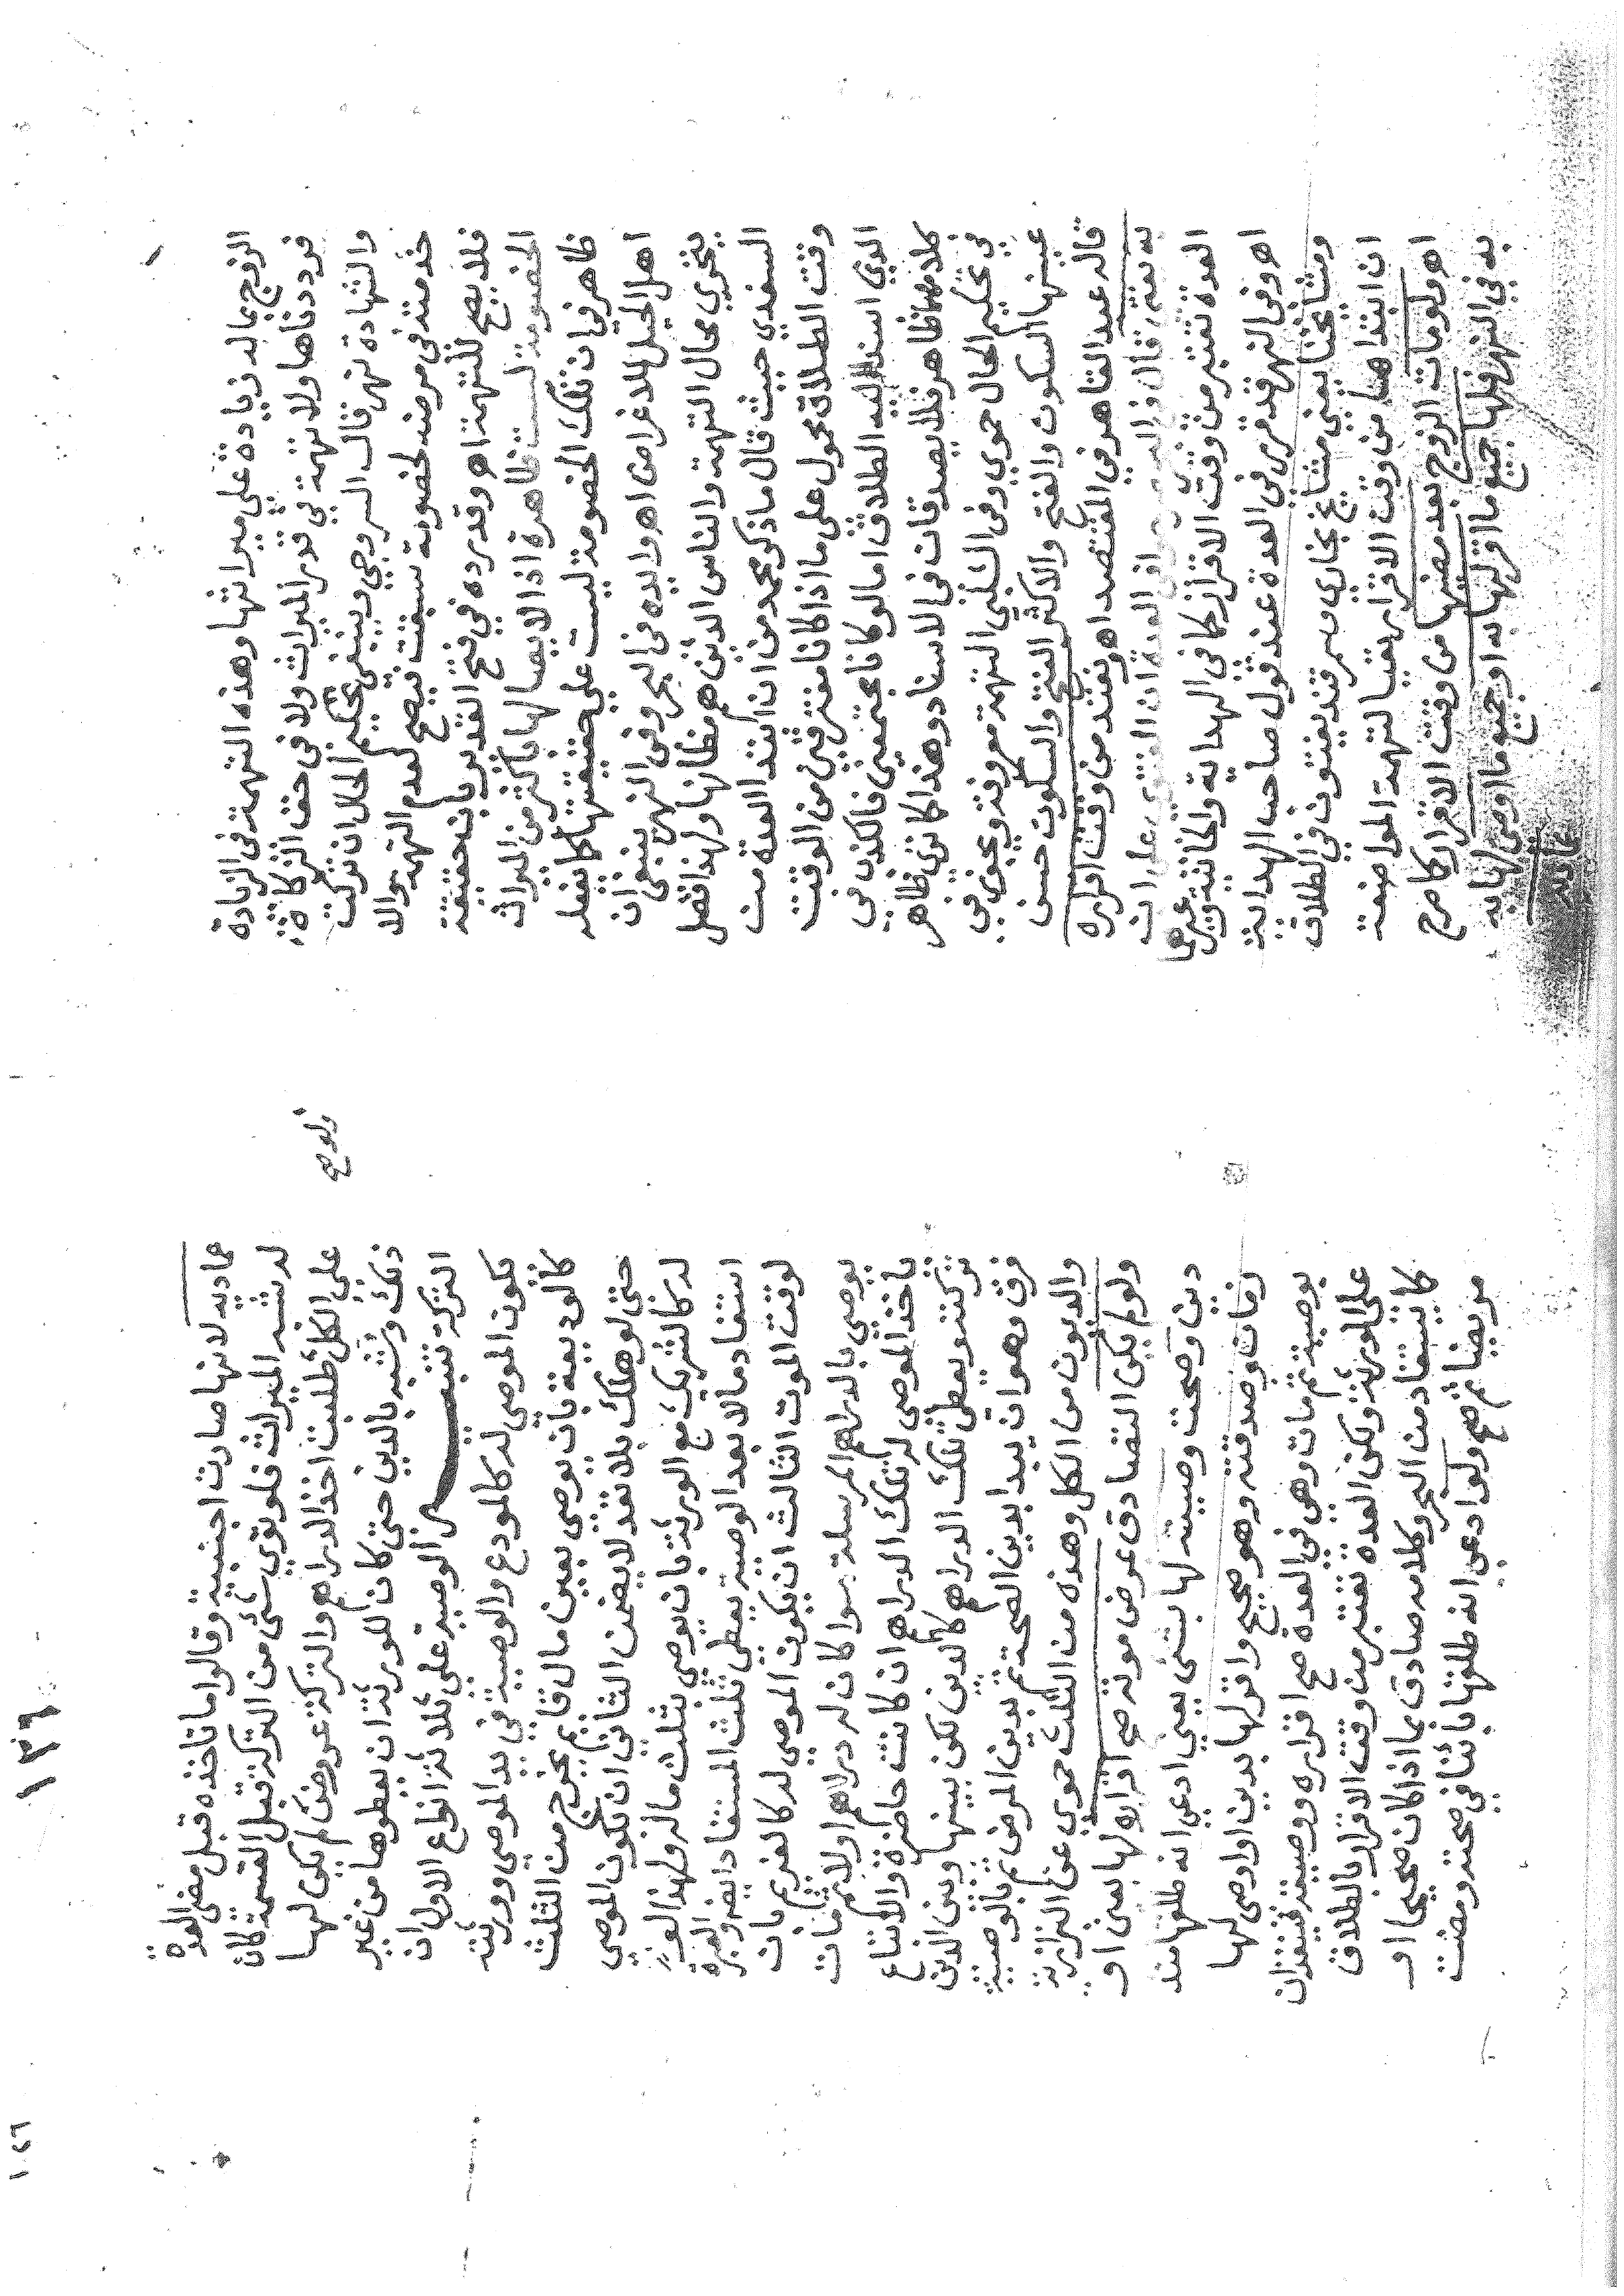 الزوج بماله زيادة على ميراثها وهذه التهمة في الزيادة
فرددناها ولا تهمة في قدر الميراث ولا في حق الزكاة
والشهادة نهر قال السروجي وينبغي تحكيم الحال ان تركت
خدمته في مرضه لخصومة سبقت فيصح لعدم التهمة والا
فلا يصح للتهمة اه وقد رده في فتح القدير بان حقيقة
الخصومة ليست ظاهرة اذا لايصا لها باكثر من الميراث
ظاهر في ان تلك الخصومة ليست على حقيقتها كما يفعله
اهل الحيل للاغراض اه وايده في البحر وفي النهر ينبغي ان
يتحرى محال التهمة والناس الذين هم مظانها ولهذا فصل
السغدي حيث قال ما ذكر محمد من ان ابتدا العدة من
وقت الطلاق محمول على ما اذا كانا متفرقين من الوقت
الذي اسند اليه الطلاق اما لو كانا مجتمعين فالكذب في
كلامهما ظاهر فلا يصدقان في الاسناد وهذا كما ترى ظاهر
في تحكيم الحال حموي وفي الشلبي التهمة معروفة ويجوز في
عينها السكون والفتح والاكثر الفتح والسكون حسن
قاله عبد القاهر في المقتصد اه وتعتد من وقت اقراره
به يفتى قال في ان الفتوى على ان
العدة تعتبر من وقت الاقرار كما في الهداية والخانية وغيرها
اه وفي النهر قد مر في العدة عند قول صاحب الهداية
ومشايخنا يعني مشايخ بخارى وسمرقند يفتون في الطلاق
ان ابتداها من وقت الاقرار نفيا لتهمة المواضعة
اه ولو مات الزوج بعد مضيها من وقت الاقرار كما صرح
به في النهر فلها جميع ما اقر لها به او جميع ما اوصى لها به
عمادية
١٣٦
عمادية لانها صارت اجنبية وقالوا ما تاخذه قبل مضي العدة
له شبه الميراث فلو توي شئ من التركة قبل القسمة كان
على الكل ولو طلبت اخذ الدراهم والتركة عروض لم يكن لها
ذلك وشبه بالدين حتى كان للورثة ان يعطوها من غير
التركة تتمة الوصية على ثلاثة انواع الاول ان
يكون الموصى له كالمودع والوصية في يد الموصي وورثته
كالوديعة بان يوصي بعين مال قايم يخرج من الثلث
حتى لو هلك بلا تعد لا يضمن الثاني ان يكون الموصى
له كالشريك مع الورثة بان يوصي بثلث ماله ولهذا لو
استفاد مالا بعد الوصية يعطى ثلث المستفاد ايضا والعبرة
لوقت الموت الثالث ان يكون الموصى له كالغريم بان
يوصي بالدراهم المرسلة سوا كان له دراهم او لا ثم مات
ياخذ الموصى له تلك الدراهم ان كانت حاضرة والا تباع
تركته ويعطى تلك الدراهم كالدين لكن بينها وبين الدين
فرق وهو ان يبدا بدين الصحة ثم بدين المرض ثم بالوصية
والديون من الكل وهذه من الثلث حموي عن البزازية
ولو لم يكن التصادق بمرض موته صح اقراره لها بعين او
دين وصحت وصيته لها بشئ يعني ادعى انه طلقها منذ
زمان وصدقته وهو صحيح واقر لها بدين او اوصى لها
بوصية ثم مات وهي في العدة صح اقراره ووصيته فينفذان
على الورثة ولكن العدة تعتبر من وقت الاقرار بالطلاق
كما يستفاد من البحر وكلامه صادق بما اذا كان صحيحا او
مريضا ثم صح ولو ادعى انه طلقها بائنا في صحته ومضت
١٤٦